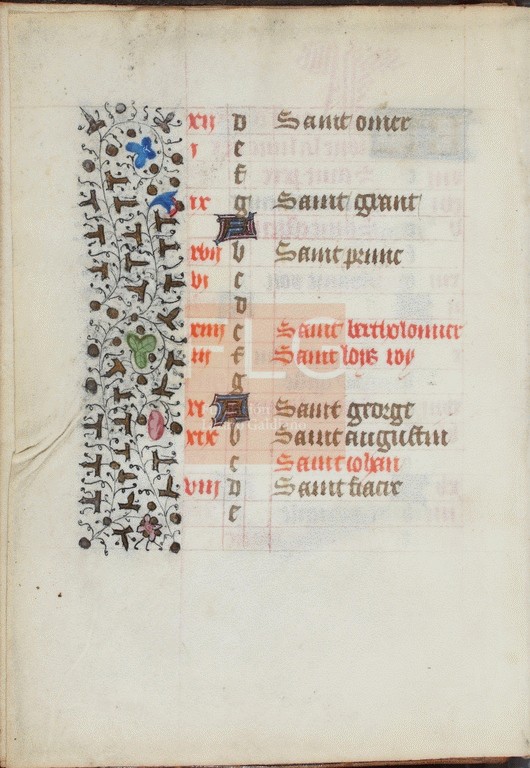 xij d Saint omer
j e
f
ix g Saint grant
A
xvij b Saint
vj c
d
xiiij e Saint bertholomier
iij f Saint loys roy
g
xj A Saint george
xix b Saint augustin
c Saint iohan
viij d Saint fiacre
e
FLG
Lázaro Galdiano